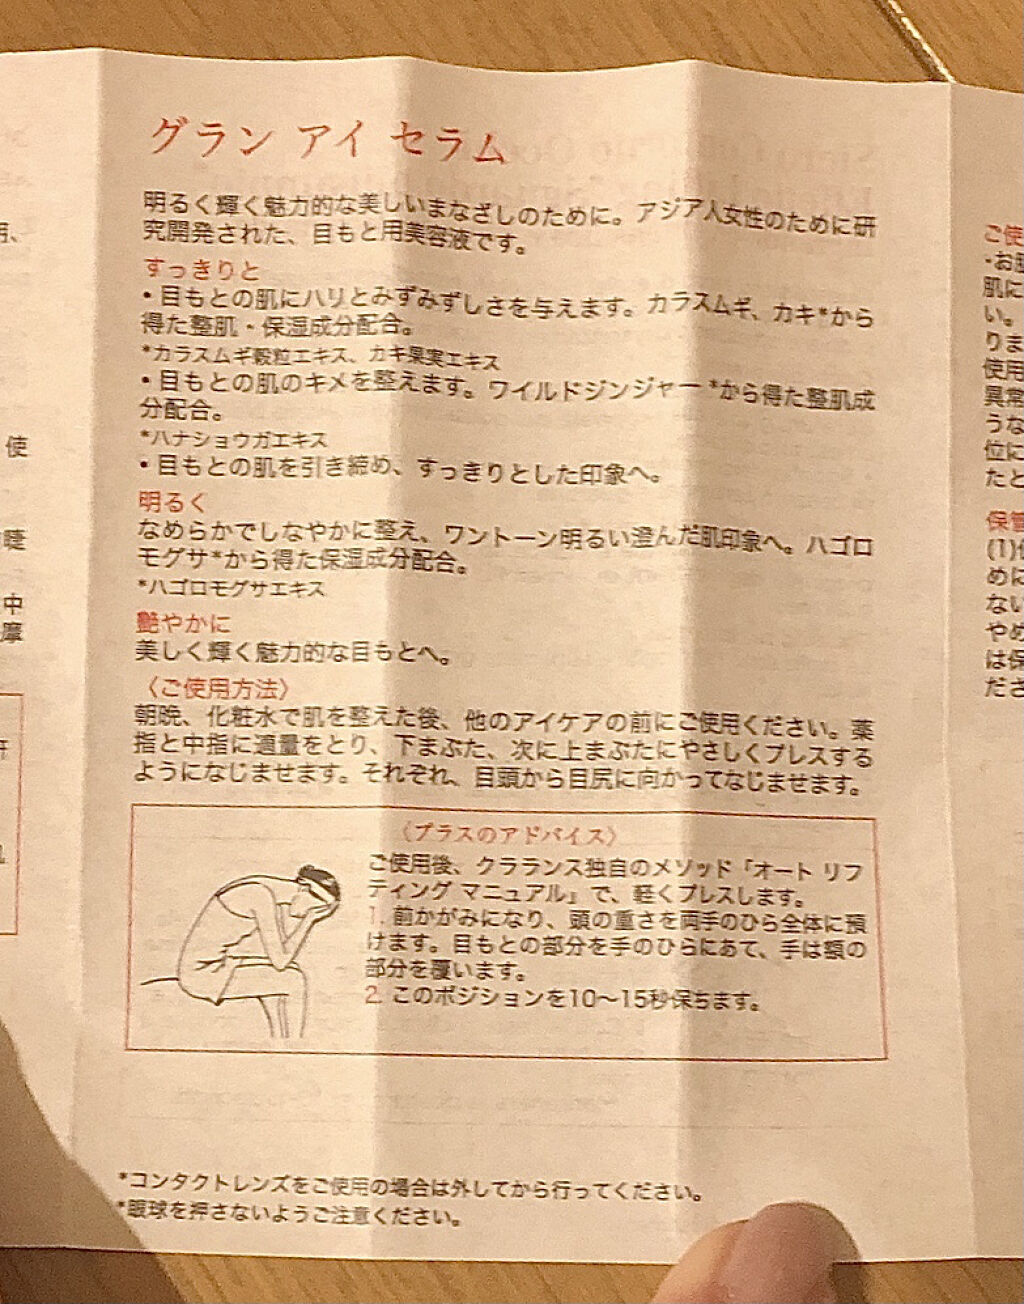 グラン アイ セラム
明るく輝く魅力的な美しいまなざしのために。アジア人女性のために研
究開発された、目もと用美容液です。
すっきりと
・目もとの肌にハリとみずみずしさを与えます。カラスムギ、カキ*から
得た整肌・保湿成分配合。
*カラスムギ穀粒エキス、カキ果実エキス
・目もとの肌のキメを整えます。ワイルドジンジャー*から得た整肌成
分配合。
*ハナショウガエキス
・目もとの肌を引き締め、すっきりとした印象へ。
明るく
なめらかでしなやかに整え、ワントーン明るい澄んだ肌印象へ。ハゴロ
モグサ*から得た保湿成分配合。
*ハゴロモグサエキス
艶やかに
美しく輝く魅力的な目もとへ。
〈ご使用方法〉
朝晩、化粧水で肌を整えた後、他のアイケアの前にご使用ください。薬
指と中指に適量をとり、下まぶた、次に上まぶたにやさしくプレスする
ようになじませます。それぞれ、目頭から目尻に向かってなじませます。
〈プラスのアドバイス〉
ご使用後、クラランス独自のメソッド「オート リフ
ティング マニュアル」で、軽くプレスします。
1. 前かがみになり、頭の重さを両手のひら全体に預
けます。目もとの部分を手のひらにあて、手は額の
部分を覆います。
2. このポジションを10～15秒保ちます。
*コンタクトレンズをご使用の場合は外してから行ってください。
*眼球を押さないようご注意ください。
使
睫
中
摩
ご使
・お
肌に
い。
りま
使用
異常
うな
位に
たと
保管
(1)
めに
ない
やめ
は保
ださ